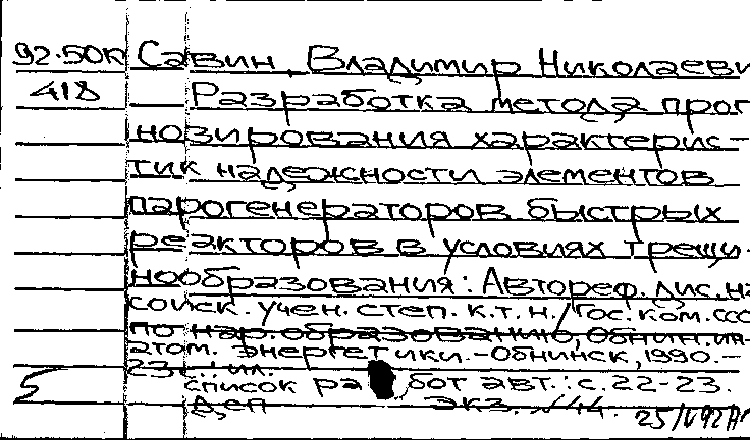 92-50к Савин, Владимир Николаеви
418 Разработка метода прог
нозирования характерис-
тик надежности элементов
парогенераторов быстрых
реакторов в условиях трещи-
нообразования: Автореф. дис. на
соиск. учен. степ. к.т.н./Гос. ком. ссс
по нар. образованию, Обнин. ин-
атом. энергетики.-Обнинск, 1990.-
23 с.: ил.
список работ авт.: с. 22-23.
5 Деп экз.